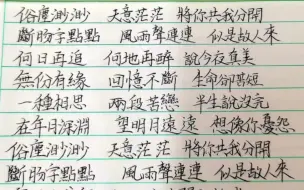 俗塵渺渺 天意茫茫 將你共我分開
斷腸字點點 風雨聲連連 似是故人來
何日再追 何地再醉 說今夜真美
無份有緣 回憶不斷 生命卻苦短
一種相思 兩段苦戀 半生說沒完
在年月深淵 望明月遠遠 想像你憂怨
俗塵渺渺 天意茫茫 將你共我分開
斷腸字點點 風雨聲連連 似是故人來